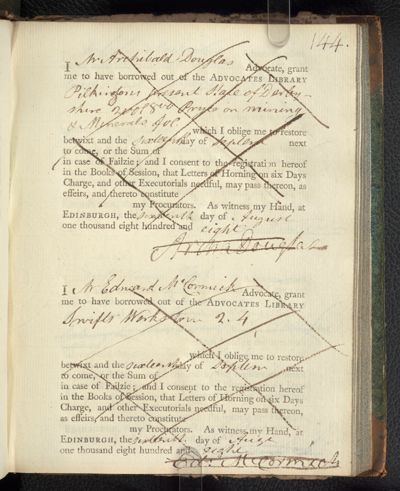 144.
I Mr Archibald Douglas Advocate, grant
me to have borrowed out of the ADVOCATES LIBRARY
Pilkingtons present State of Derby-
shire 2 vol 8vo Pryce on mining
& Minerals fol.
which I oblige me to restore
betwixt and the sixteen day of Septem next
to come, or the Sum of
in case of Failzie; and I consent to the registration hereof
in the Books of Session, that Letters of Horning on six Days
Charge, and other Executorials needful, may pass thereon, as
effeirs, and thereto constitute
my Procurators. As witness my Hand, at
EDINBURGH, the sixteenth day of August
one thousand eight hundred and eight
Archd Douglas
I Mr Edward McCormick Advocate, grant
me to have borrowed out of the ADVOCATES LIBRARY
Swifts Works tom 2. 4
which I oblige me to restore
betwixt and the sixteenth day of Septem next
to come, or the Sum of
in case of Failzie; and I consent to the registration hereof
in the Books of Session, that Letters of Horning on six Days
Charge, and other Executorials needful, may pass thereon,
as effeirs, and thereto constitute
my Procurators. As witness my Hand, at
EDINBURGH, the sixteenth day of Augt
one thousand eight hundred and eight
Ed. McCormick